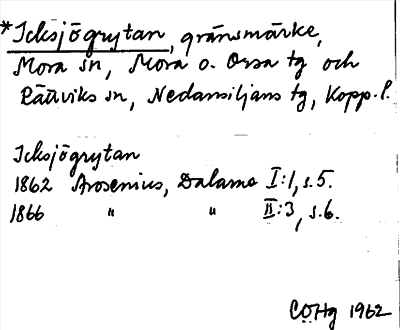 *Icksjögrytan, gränsmärke,
Mora sn, Mora o. Orsa tg och
Rättviks sn, Nedansiljans tg, Kopp. l.
Icksjögrytan
1862 Arosenius, Dalarne I:1, s.5.
1866 " " II:3, s.6.
COHg 1962